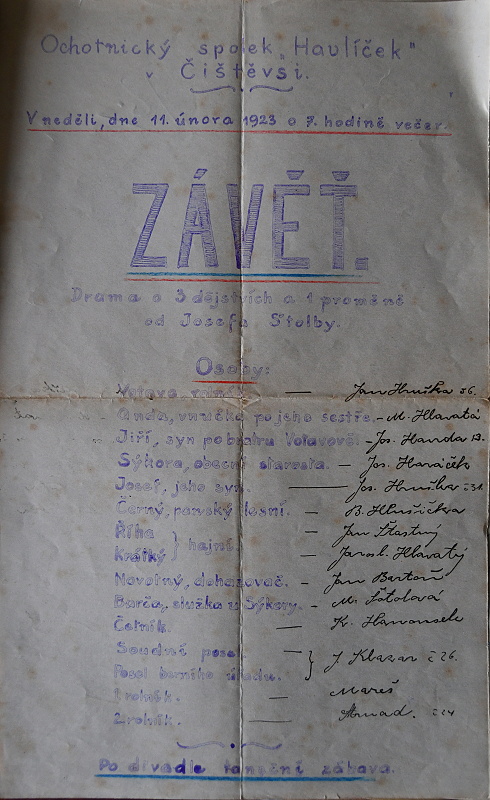 Ochotnický spolek „Havlíček"
v Čištěvsi.
V neděli, dne 11. února 1923 o 7. hodině večer.
ZÁVĚŤ.
Drama o 3 dějstvích a 1 proměně
od Josefa Štolby.
Osoby:
Votava, — Jan Hruška 56.
Anda, vnučka po jeho sestře. - M. Hlavatá
Jiří, syn po bratru Votavově. - Jos. Handa 13.
Sýkora, obecní starosta. — Jos. Haráček
Josef, jeho syn. — Jos. Hruška č 31.
Černý, panský lesní. — B. Hlušička
Říha — Jan Šťastný
Krátký } hajní. — Jarosl. Hlavatý
Novotný, dohazovač. — Jan Bartoň
Barča, služka u Sýkory. - M. Šotolová
Četník. — K.
Soudní posel —
Posel berního úřadu. } J. Klazar č 26.
1 rolník. — Mareš
2 rolník. — č 14
Po divadle taneční zábava.